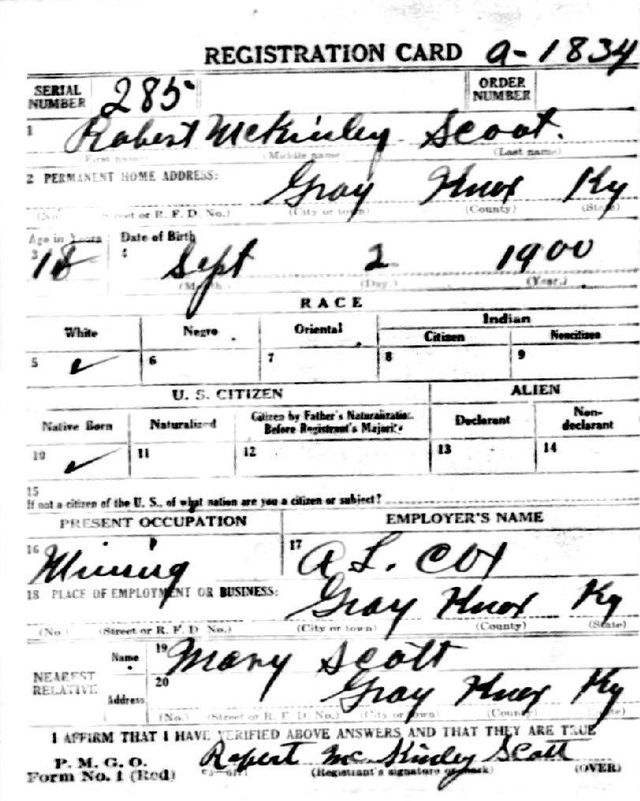 REGISTRATION CARD a-1834
SERIAL NUMBER 285 ORDER NUMBER
1 Robert McKinley Scoot.
First name (Middle name (Last name)
2 PERMANENT HOME ADDRESS: Gray Knox Ky
(No.) (Street or R. F. D. No.) (City or town) (County) (State)
Age in Years Date of Birth
3 18 4 Sept 2 1900
(Month.) (Day.) (Year.)
RACE
White Negro Oriental Indian
Citizen Noncitizen
5 ✓ 6 7 8 9
U. S. CITIZEN ALIEN
Native Born Naturalized Citizen by Father's Naturalization Before Registrant's Majority Declarant Non-declarant
10 ✓ 11 12 13 14
15
If not a citizen of the U. S., of what nation are you a citizen or subject?
PRESENT OCCUPATION EMPLOYER'S NAME
16 Mining 17 A L. Cox
18 PLACE OF EMPLOYMENT OR BUSINESS: Gray Knox Ky
(No.) (Street or R. F. D. No.) (City or town) (County) (State)
NEAREST RELATIVE Name 19 Mary Scott
Address 20 Gray Knox Ky
(No.) (Street or R. F. D. No.) (City or town) (County) (State)
I AFFIRM THAT I HAVE VERIFIED ABOVE ANSWERS AND THAT THEY ARE TRUE
P. M. G. O.
Form No. 1 (Red) Robert Mc Kinley Scott
(Registrant's signature or mark) (OVER)